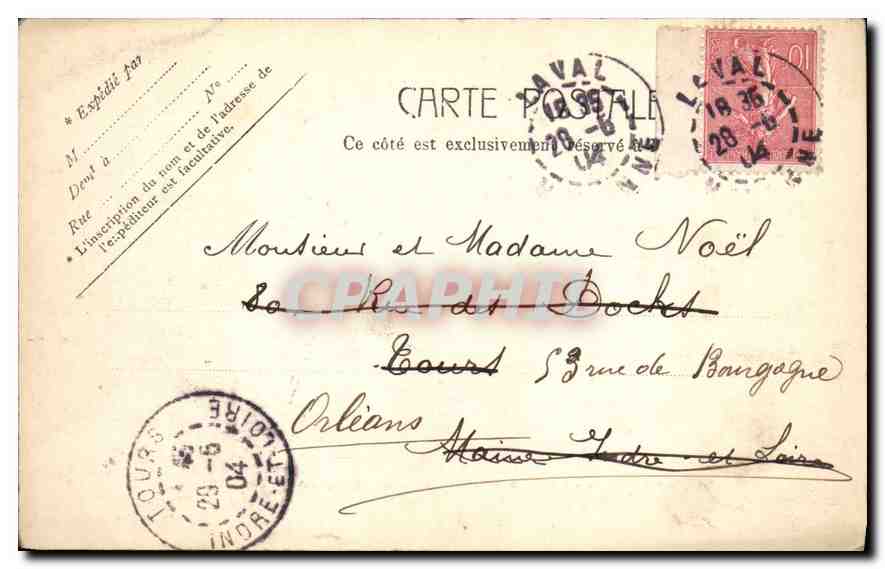 * Expédié par
M
Demt à
Rue Nº
* L'inscription du nom et de l'adresse de
l'expéditeur est facultative.
CARTE POSTALE
Ce côté est exclusivement réservé à
LAVAL
18 35
28 -6
04
LAVAL
18 35
28 -6
04
10
Monsieur et Madame Noël
20 Rue des Docks
Tours 53 rue de Bourgogne
Orléans
Indre et Loire
CPAPHIL
TOURS
29 -6
04
INDRE-ET-LOIRE